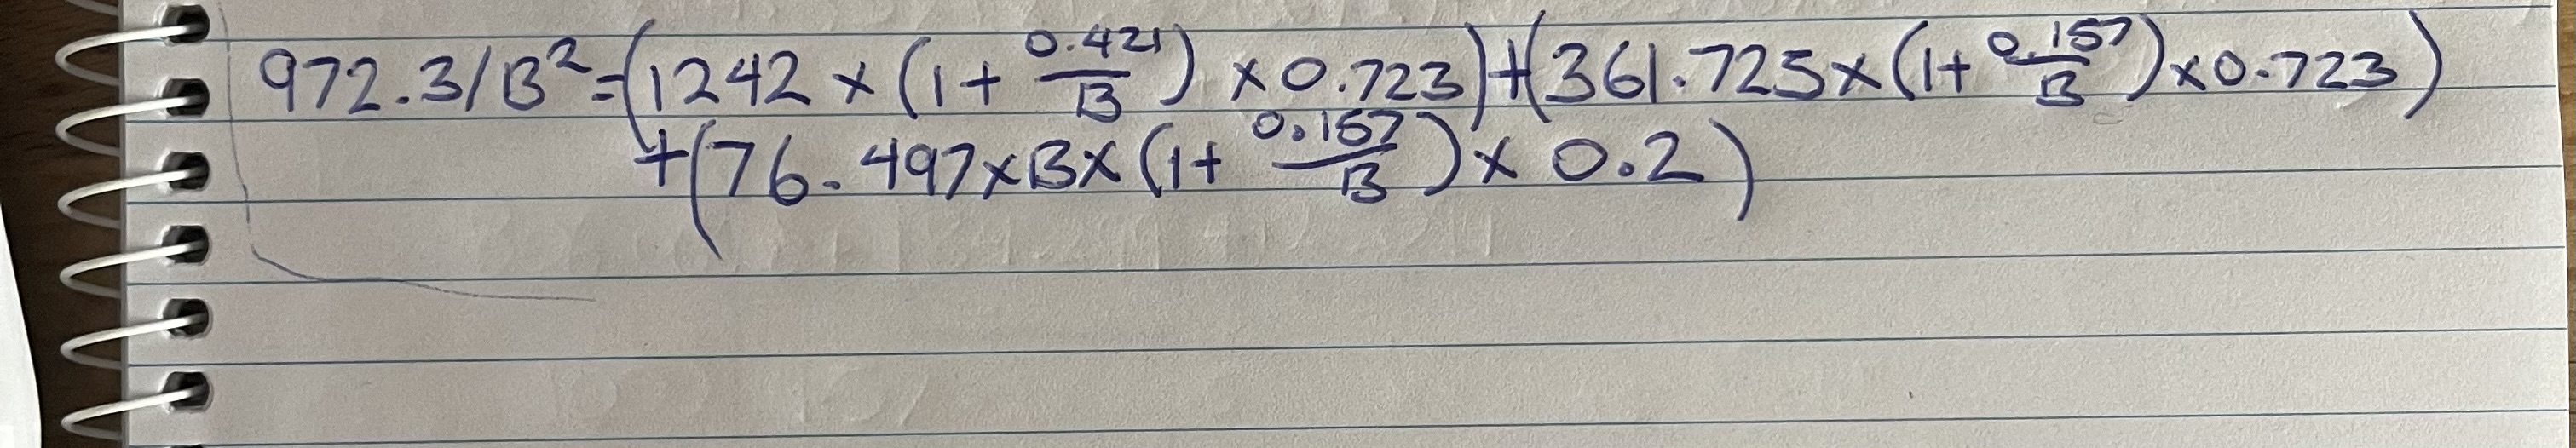 972.3/B²=(1242 x (1+ 0.421/B) x0.723)+(361.725x(1+ 0.157/B)x0.723)
+(76.497xBx(1+ 0.157/B)x 0.2)